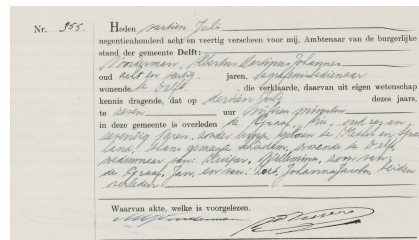 Nr. 955. Heden veertien Juli
negentienhonderd acht en veertig verscheen voor mij, Ambtenaar van de burgerlijke
stand der gemeente Delft:
Noorderman, Johannes
oud acht en veertig jaren, begrafenisdienaar
wonende te Delft, die verklaarde, daarvan uit eigen wetenschap
kennis dragende, dat op dertien Juli dezes jaars,
te zeven uur minuten
in deze gemeente is overleden de Graaf, Arie, oud zes en
zeventig jaren, zonder beroep, geboren te
land, gemeente Schiedam, wonende te Delft,
weduwnaar van: Willemina, zoon van:
de Graaf, Jan, en van: Johanna Jacoba, beiden
overleden
Waarvan akte, welke is voorgelezen.